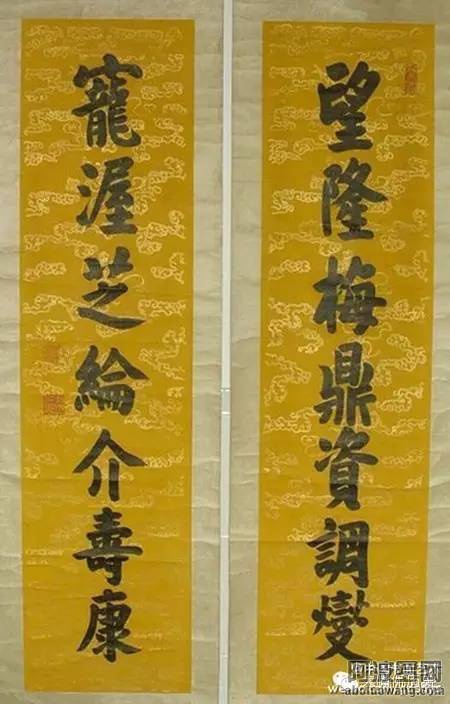 望隆梅鼎資調燮
寵渥芝綸介壽康
aboluowang.com